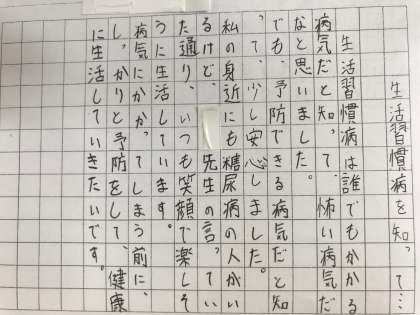 生活習慣病を知って…
生活習慣病は誰でもかかる
病気だと知って、怖い病気だ
なと思いました。
でも、予防できる病気だと知
って、少し安心しました。
私の身近にも糖尿病の人がい
るけど、先生の言っていっ
た通り、いつも笑顔で楽しそ
うに生活しています。
病気にかかってしまう前に、
しっかりと予防をして、健康
に生活していきたいです。